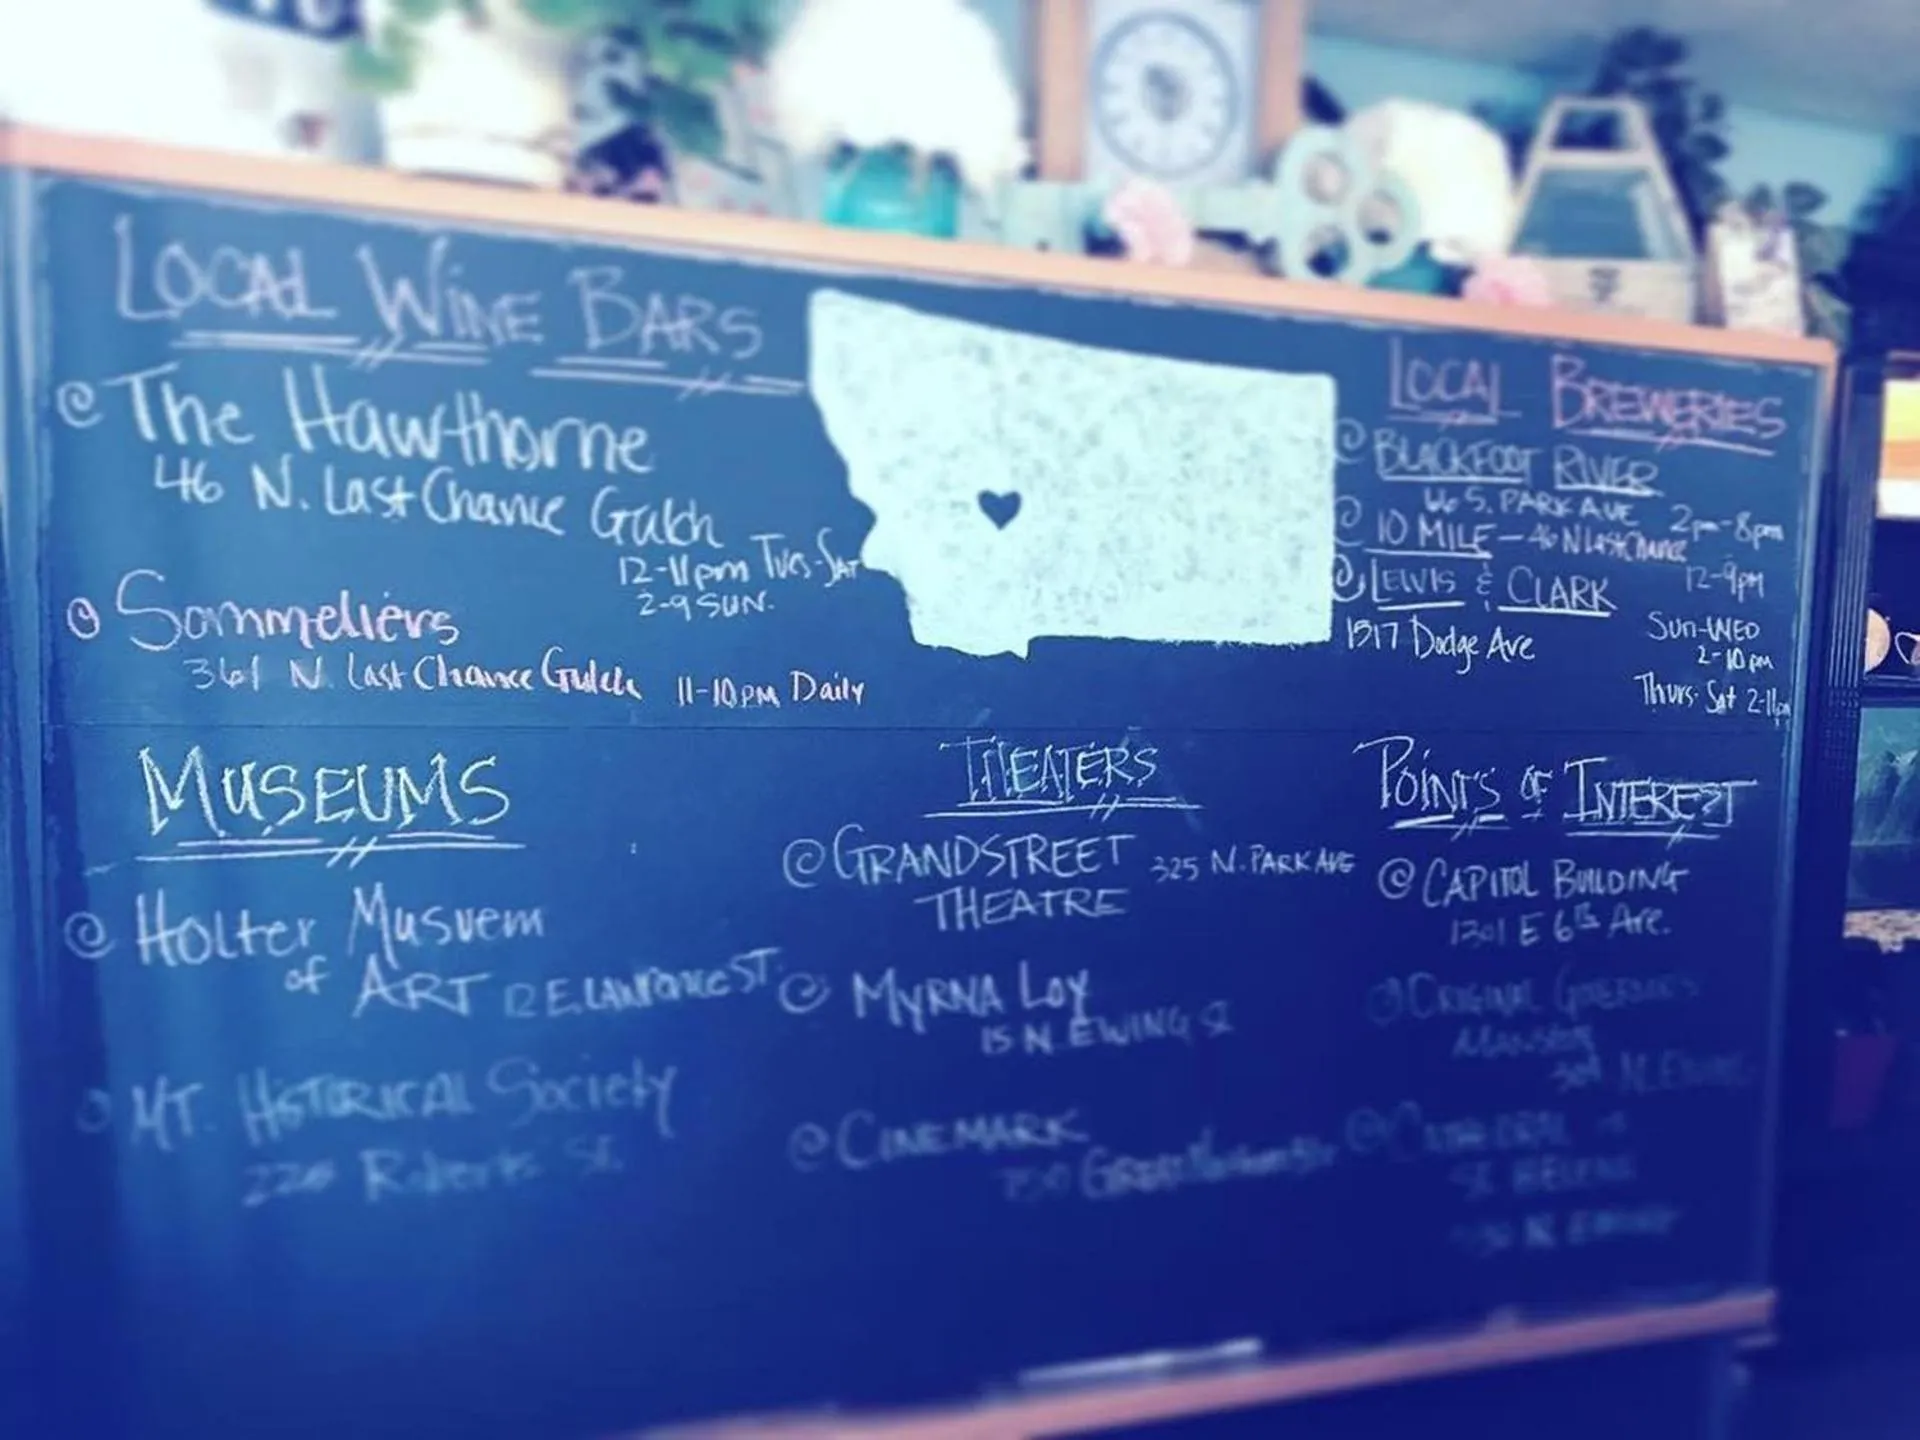 LOCAL WINE BARS
@ The Hawthorne
46 N. Last Chance Gulch
12-11pm Tues-Sat
2-9 SUN.
@ Sommeliers
361 N. Last Chance Gulch 11-10PM Daily
LOCAL BREWERIES
@ BLACKFOOT RIVER
66 S. PARK AVE 2pm-8pm
@ 10 MILE - 46 N Last Chance
12-9pm
@ LEWIS & CLARK
1517 Dodge Ave
SUN-WED
2-10pm
Thurs-Sat 2-11pm
MUSEUMS
@ Holter Museum
of ART 12 E. LAWRENCE ST.
@ MT. HISTORICAL Society
Roberts St.
THEATERS
@ GRANDSTREET 325 N. PARK AVE
THEATRE
@ MYRNA LOY
15 N. EWING St
@ CINEMARK
POINTS OF INTEREST
@ CAPITOL BUILDING
1301 E 6th Ave.
@ ORIGINAL GOVERNOR'S
MANSION
304 N. EWING
@ CATHEDRAL of
St. HELENA
N. EWING